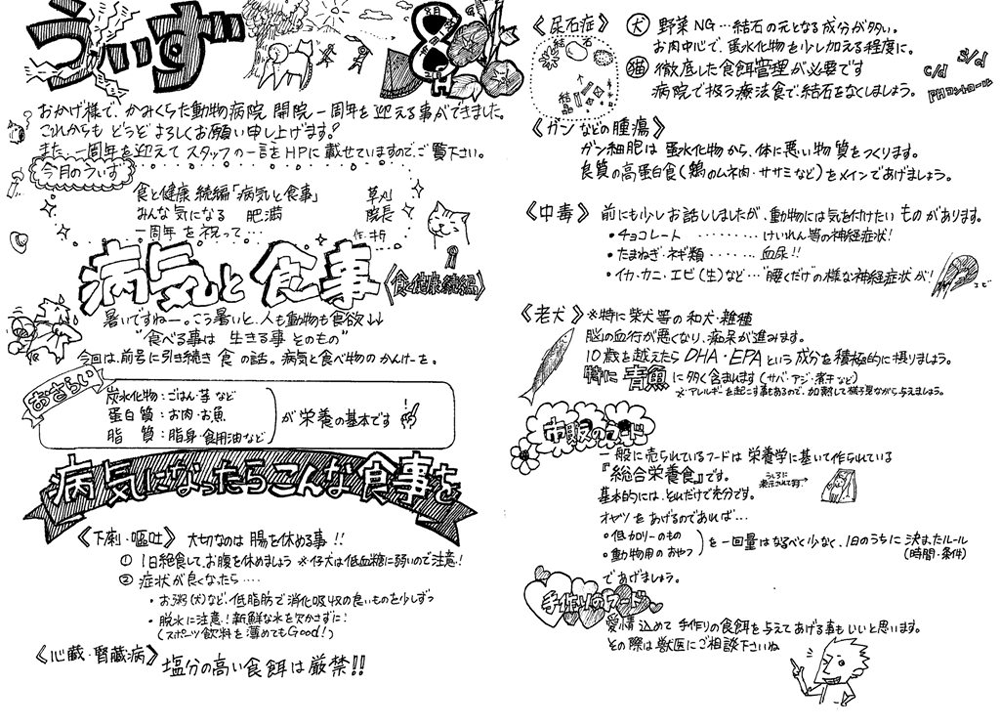 うぃず
8月
おかげ様で、かみくらた動物病院 開院一周年を迎える事ができました。
これからも どうぞ よろしくお願い申し上げます。
また、一周年を迎えて スタッフの一言をHPに載せていますので、ご覧下さい。
今月のうぃず
食と健康 続編「病気と食事」 草刈
みんな気になる 肥満 院長
一周年を祝って…
病気と食事
《食と健康続編》
暑いですねー。こう暑いと、人も動物も食欲↓↓
"食べる事は 生きる事 そのもの"
今回は、前号に引き続き 食 の話。病気と食べ物の かんけーを。
おさらい
炭水化物：ごはん・芋 など
蛋白質：お肉・お魚
脂 質：脂身・食用油など
が 栄養の基本です
病気になったらこんな食事を
《下痢・嘔吐》 大切なのは 腸を休める事 !!
① 1日絶食して、お腹を休めましょう ※仔犬は低血糖に弱いので注意!
② 症状が良くなったら‥‥
・お粥(犬)など、低脂肪で消化吸収の良いものを少しずつ
・脱水に注意!新鮮な水を欠かさずに!
(スポーツ飲料を薄めてもGood!)
《心臓・腎臓病》 塩分の高い食餌は厳禁!!
《尿石症》
結石
犬 野菜NG…結石の元となる成分が多い。
お肉中心で、蛋水化物を少し加える程度に。
猫 徹底した食餌管理が必要です
病院で扱う療法食で結石をなくしましょう。
c/d s/d
PHコントロール
《ガンなどの腫瘍》
ガン細胞は 蛋水化物から、体に悪い物質をつくります。
良質の高蛋白食(鶏のムネ肉・ササミなど)をメインであげましょう。
《中毒》 前にも少しお話ししましたが、動物には気を付けたい ものがあります。
・チョコレート ‥‥‥‥ けいれん等の神経症状!
・たまねぎ・ネギ類 ‥‥‥ 血尿!!
・イカ・カニ・エビ(生)など…"腰くだけ"の様な神経症状が!
エビ
《老犬》 ※特に柴犬等の和犬・雑種
脳の血行が悪くなり、痴呆が進みます。
10歳を越えたら DHA・EPAという成分を積極的に摂りましょう。
特に 青魚 に多く含まれます(サバ・アジ・煮干など)
※アレルギーを起こす事もあるので、加熱して様子見ながら与えましょう。
市販のフード
一般に売られているフードは 栄養学に基いて作られている
『総合栄養食』です。
うしろに表示されてます→
基本的には、それだけで充分です。
オヤツをあげるのであれば…
・低カロリーのもの
・動物用のおやつ
を 一回量はなるべく少なく、1日のうちに 決まったルール
(時間・条件)
であげましょう。
手作りのフード
愛情 込めて 手作りの食餌を与えてあげる事もいいと思います。
その際は獣医にご相談下さいね